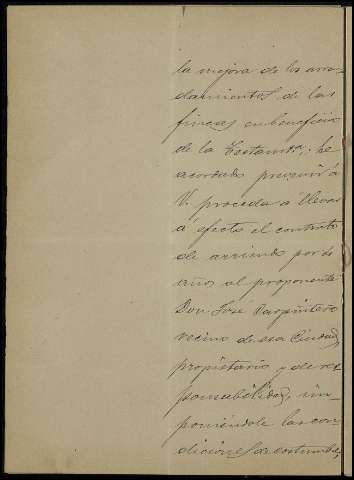 la mejora de los arren-
damientos de las
fincas en beneficio
de la Testamᵃ; he
acordado prevenir á
V. proceda á llevar
á efecto el contrato
de arriendo por
años al proponente
Don José
vecino de esa Ciudad,
propietario y de res-
ponsabilidad, im-
poniéndole las con-
diciones de costumbre,